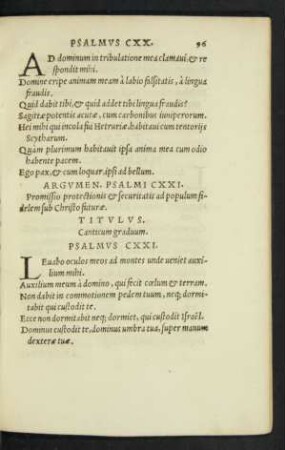 PSALMVS CXX. 96
AD dominum in tribulatione mea clamaui, & re
spondit mihi.
Domine eripe animam meam à labio falsitatis, à lingua
fraudis.
Quid dabit tibi, & quid addet tibi lingua fraudis?
Sagittæ potentis acutæ, cum carbonibus iuniperorum.
Hei mihi qui incola fui Hetruriæ, habitaui cum tentorijs
Scytharum.
Quàm plurimum habitauit ipsa anima mea cum odio
habente pacem.
Ego pax, & cum loquar, ipsi ad bellum.
ARGVMEN. PSALMI CXXI.
Promissio protectionis & securitatis ad populum fi
delem sub Christo futuræ.
TITVLVS.
Canticum graduum.
PSALMVS CXXI.
LEuabo oculos meos ad montes unde ueniet auxi
lium mihi.
Auxilium meum à domino, qui fecit cœlum & terram.
Non dabit in commotionem pedem tuum, neq; dormi
tabit qui custodit te.
Ecce non dormitabit neq; dormiet, qui custodit Israël.
Dominus custodit te, dominus umbra tua, super manum
dexteræ tuæ.